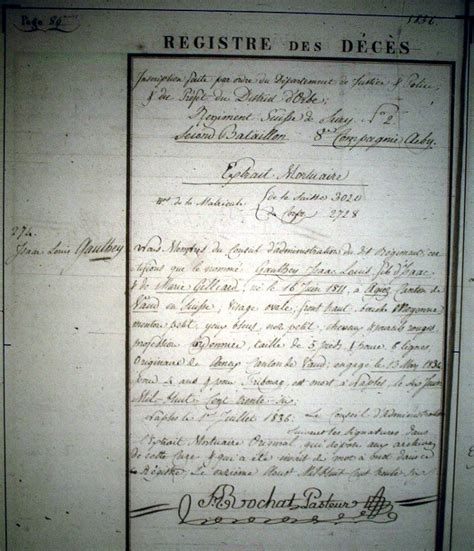 Page 89
1836.
REGISTRE DES DÉCÈS
Inscription faite par ordre du Département de Justice & Police,
& du Préfet du District d'Orbe,
Régiment Suisse de N.º 2
Second Bataillon 8me Compagnie
Extrait Mortuaire
Nos de la Matricule de la Suisse 3024
du Corps 2728
272
Isaac Louis Gaulthey
Nous Membres du Conseil d'administration du dit Régiment, cer-
tifions que le nommé Gaulthey Isaac Louis, fils d'Isaac
& de Marie Gilliard, né le 16 Juin 1811, à Agiez Canton de
Vaud en Suisse, visage ovale, front haut, bouche moyenne
menton petit, yeux bleus nez petit, cheveux & sourcils rouges,
profession Cordonnier, taille de 5 pieds, 4 pouces 6 lignes,
Originaire de Canton de Vaud, engagé le 13 May 1834
pour 4 ans & pour Fribourg, est mort à Naples le six Juin
Mil-huit-Cent trente-six.
Naples le 1er Juillet 1836. Le Conseil d'Administration
Suivent les Signatures dans
l'Extrait Mortuaire Original qui repose aux archives
de cette Cure & qui a été inscrit de mot à mot dans ce
Registre. Le onzième Aoust Mil huit Cent trente six
Rochat Pasteur